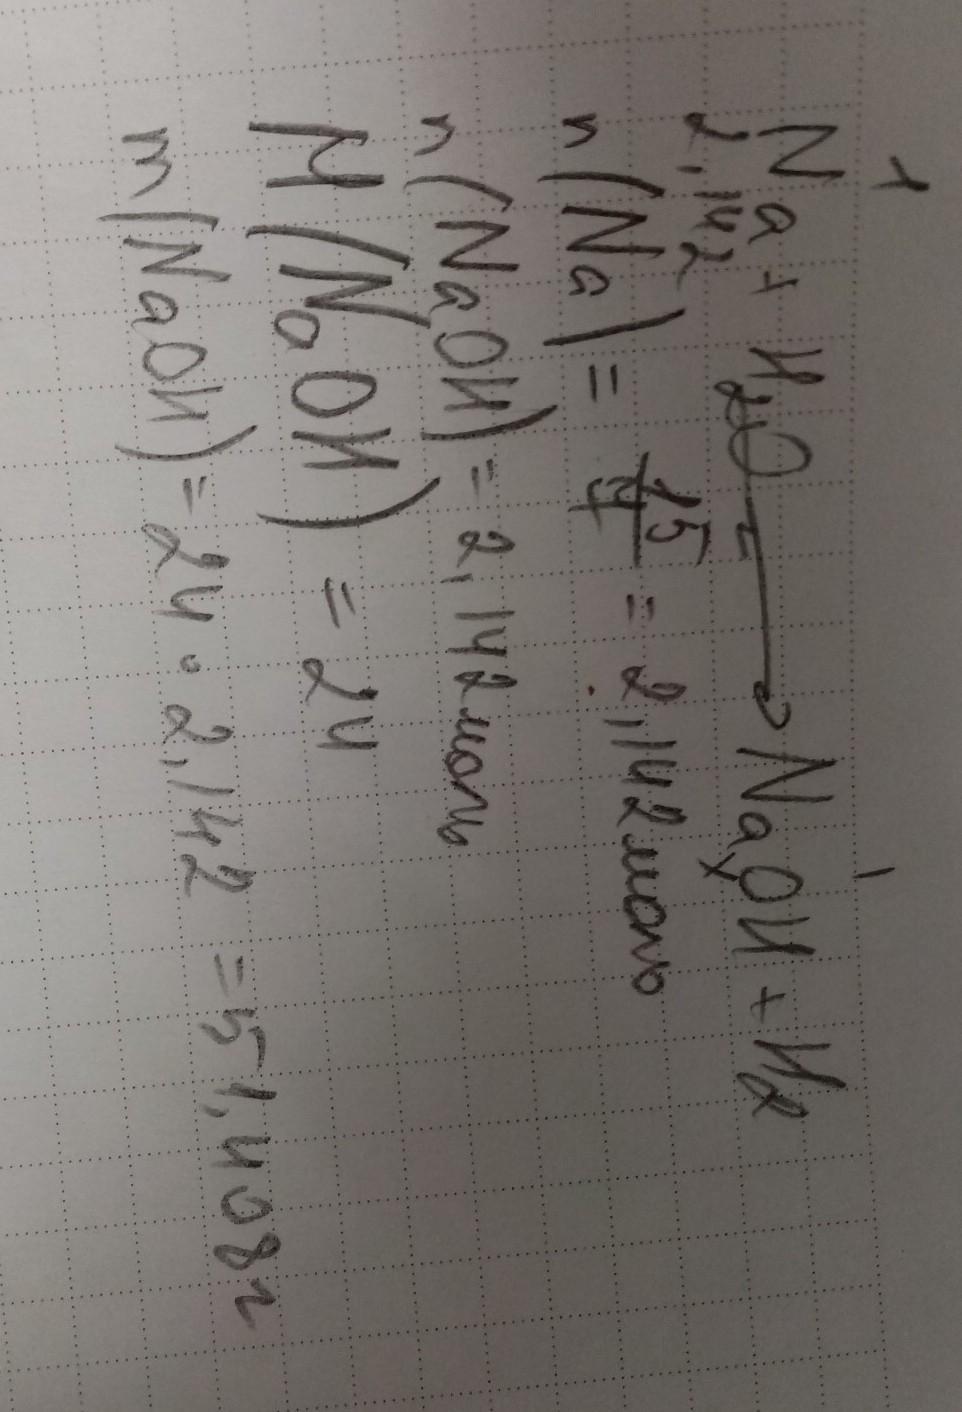 1 1
Na + H2O → NaOH + H2
2,142 x
n(Na) = 15/7 = 2,142 моль
n(NaOH) = 2,142 моль
M(NaOH) = 24
m(NaOH) = 24 · 2,142 = 51,408 г